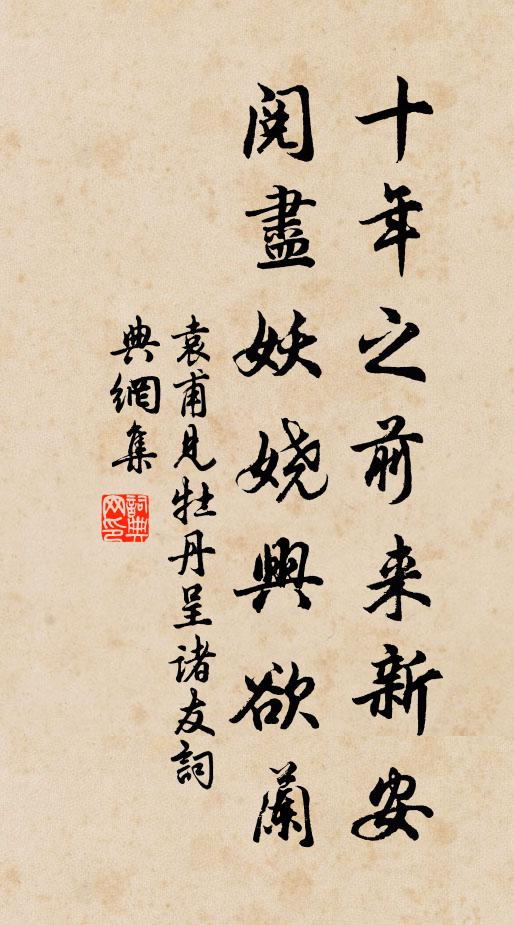 十年之前来新安
阅盡妖娆興欲蘭
袁甫見牡丹呈诸友詞
典網集
詞典網印